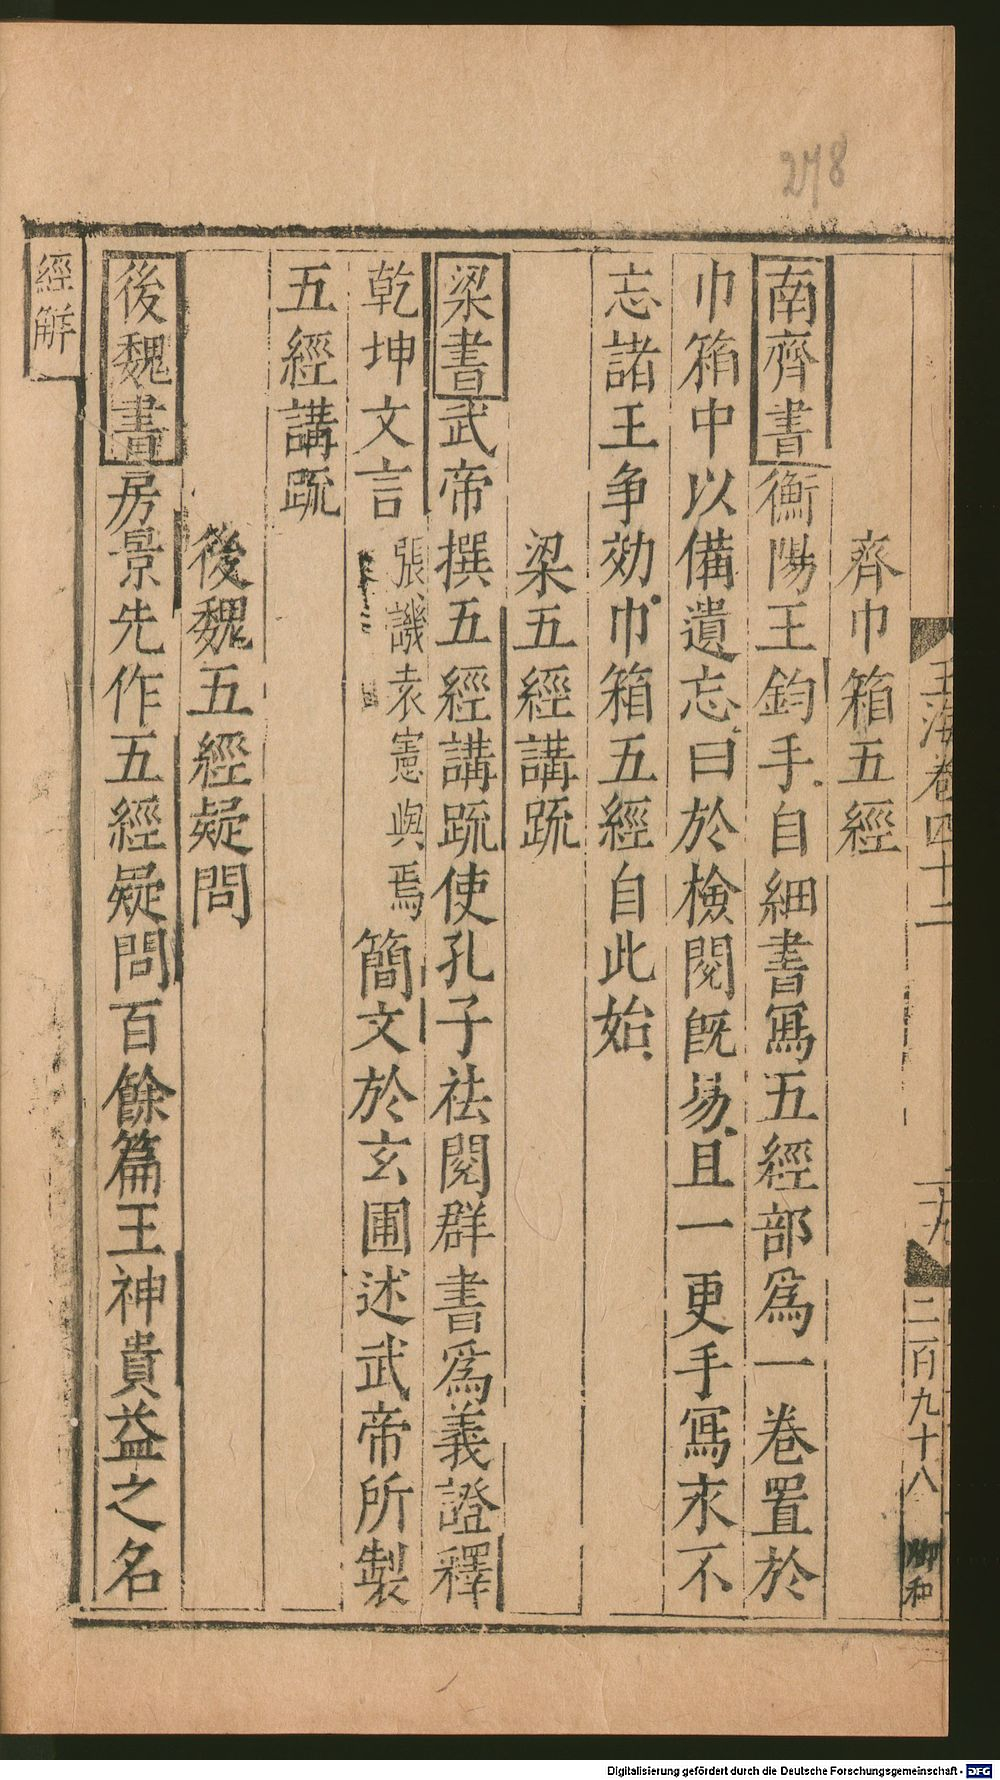 278
玉海卷四十二
二百九十八
齊巾箱五經
南齊書衡陽王鈞手自細書寫五經部爲一卷置於
巾箱中以備遺忘曰於檢閱旣易且一更手寫永不
忘諸王争効巾箱五經自此始
梁五經講䟽
梁書武帝撰五經講䟽使孔子祛閱群書爲義證釋
乾坤文言張譏袁憲與焉簡文於玄圃述武帝所製
五經講䟽
後魏五經疑問
後魏書房景先作五經疑問百餘篇王神貴益之名
經解
Digitalisierung gefördert durch die Deutsche Forschungsgemeinschaft - DFG